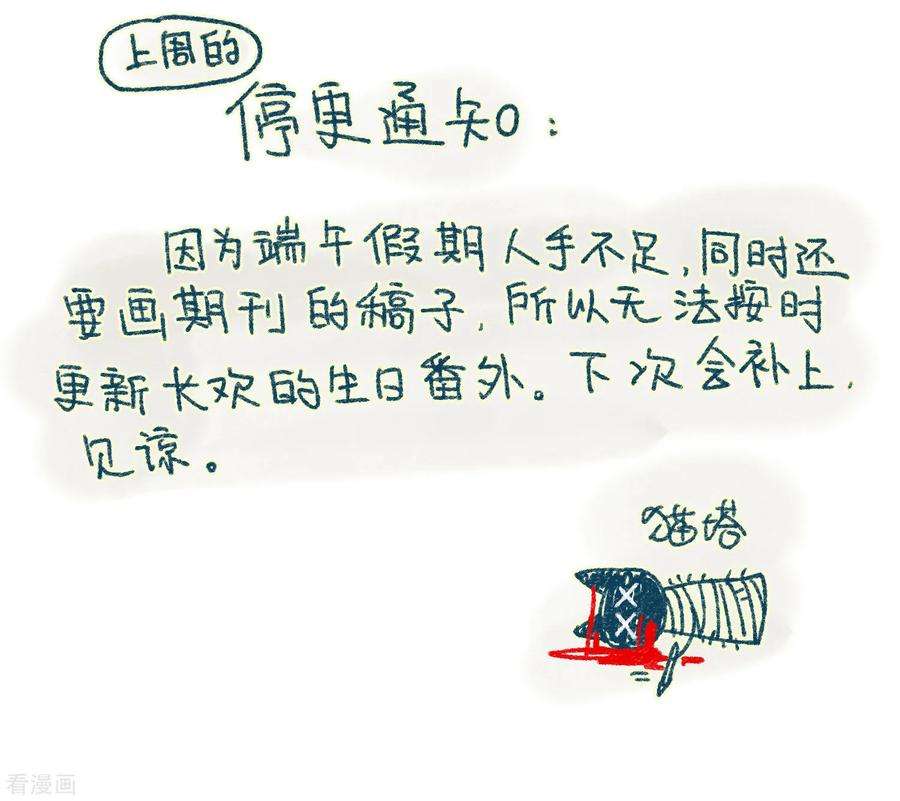 上周的
停更通知：
因为端午假期人手不足,同时还
要画期刊的稿子,所以无法按时
更新长欢的生日番外。下次会补上,
见谅。
猫塔
看漫画